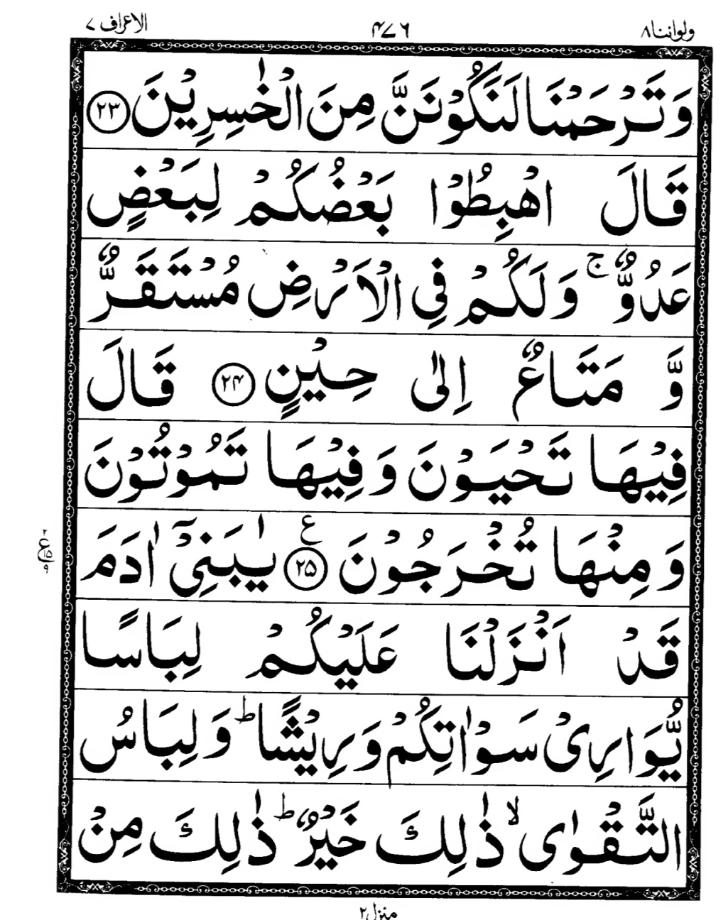 ولواننا۸ ۴۷۶ الاعراف ۷
وَتَرْحَمْنَا لَنَكُوْنَنَّ مِنَ الْخٰسِرِيْنَ ۲۳
قَالَ اهْبِطُوْا بَعْضُكُمْ لِبَعْضٍ
عَدُوٌّ ۚ وَلَكُمْ فِى الْاَرْضِ مُسْتَقَرٌّ
وَّ مَتَاعٌ اِلٰى حِيْنٍ ۲۴ قَالَ
فِيْهَا تَحْيَوْنَ وَفِيْهَا تَمُوْتُوْنَ
وَمِنْهَا تُخْرَجُوْنَ ۲۵ ع يٰبَنِىْٓ اٰدَمَ
قَدْ اَنْزَلْنَا عَلَيْكُمْ لِبَاسًا
يُّوَارِىْ سَوْاٰتِكُمْ وَرِيْشًا ؕ وَلِبَاسُ
التَّقْوٰى ۙ ذٰلِكَ خَيْرٌ ؕ ذٰلِكَ مِنْ
منزل۲